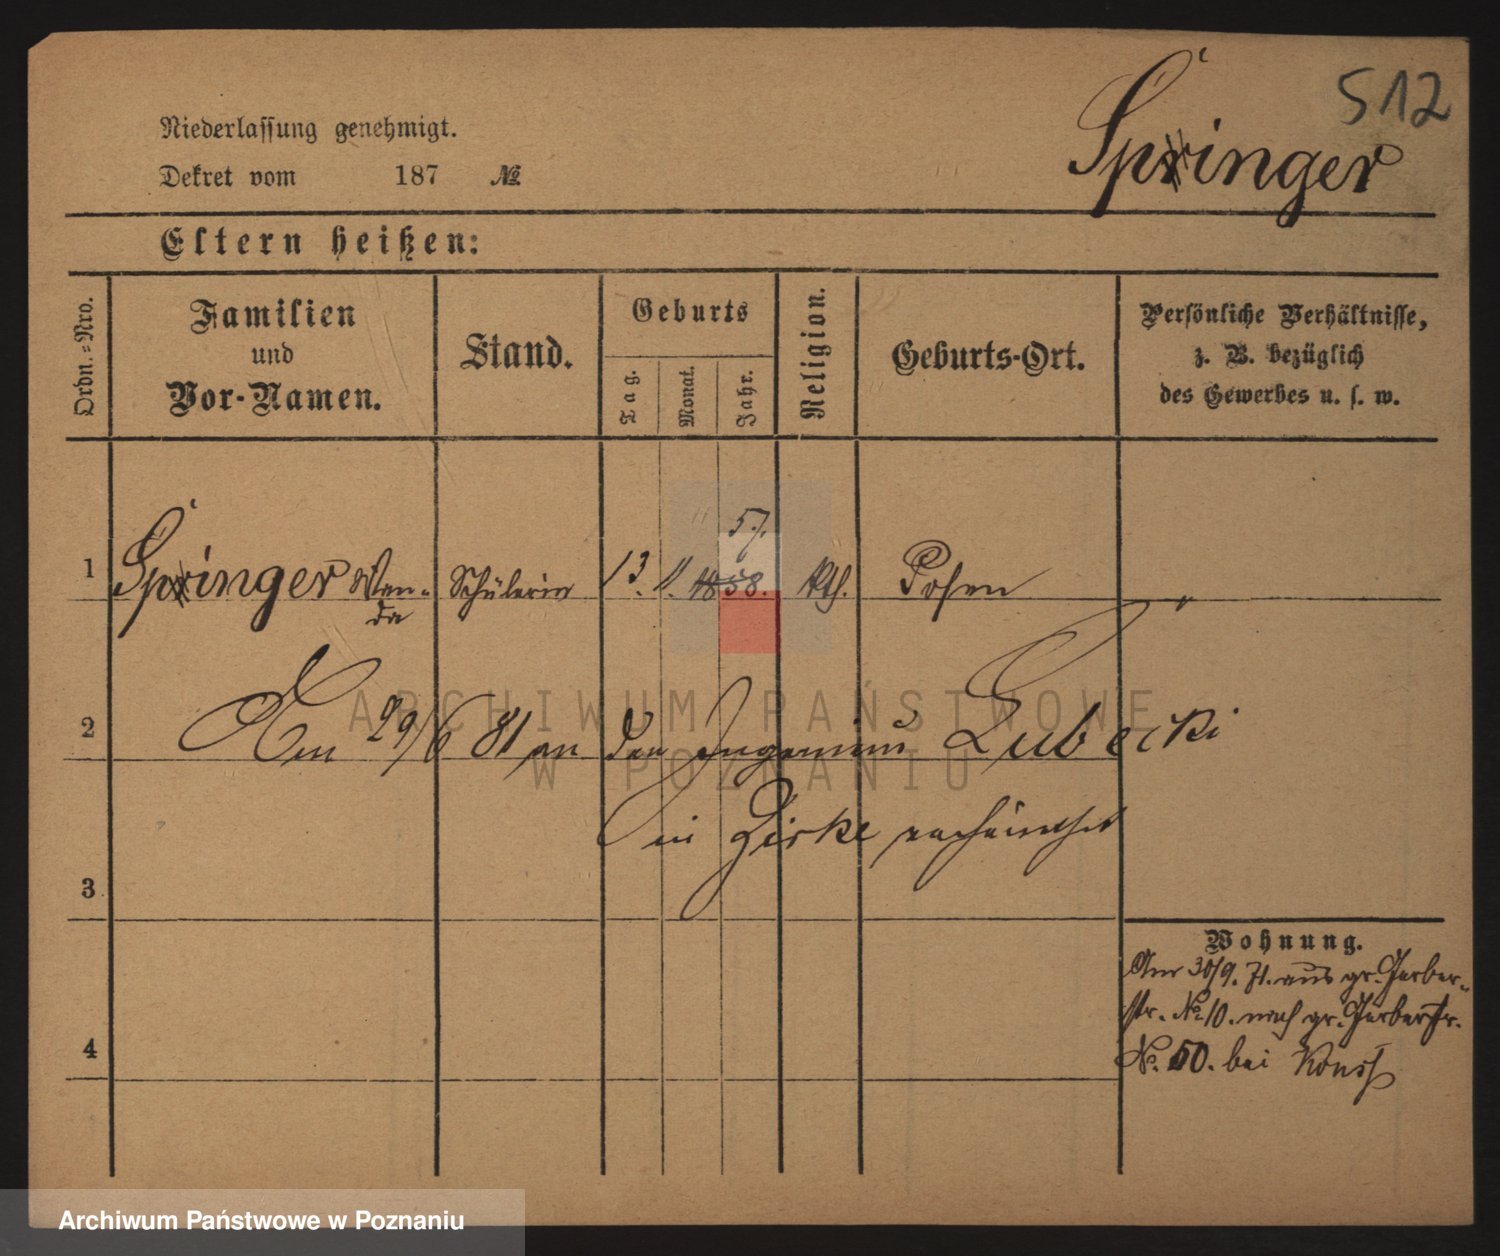 512
Springer
Niederlassung genehmigt.
Dekret vom 187 №
Eltern heißen:
Ordn.=Nro.
Familien
und
Vor-Namen.
Stand.
Geburts
Tag.
Monat.
Jahr.
Religion.
Geburts-Ort.
Persönliche Verhältnisse,
z. B. bezüglich
des Gewerbes u. s. w.
57.
1 Springer Wan- Schülerin 13. 11. 1858. Kth. Posen
da
2 Am 29/6 81 an den Ingenieur Lubecki
in Zirke verheirathet
3
Wohnung.
Am 30/9. 71. aus gr. Gerber-
str. № 10. nach gr. Gerberstr.
4 № 50. bei
ARCHIWUM PAŃSTWOWE
W POZNANIU
Archiwum Państwowe w Poznaniu